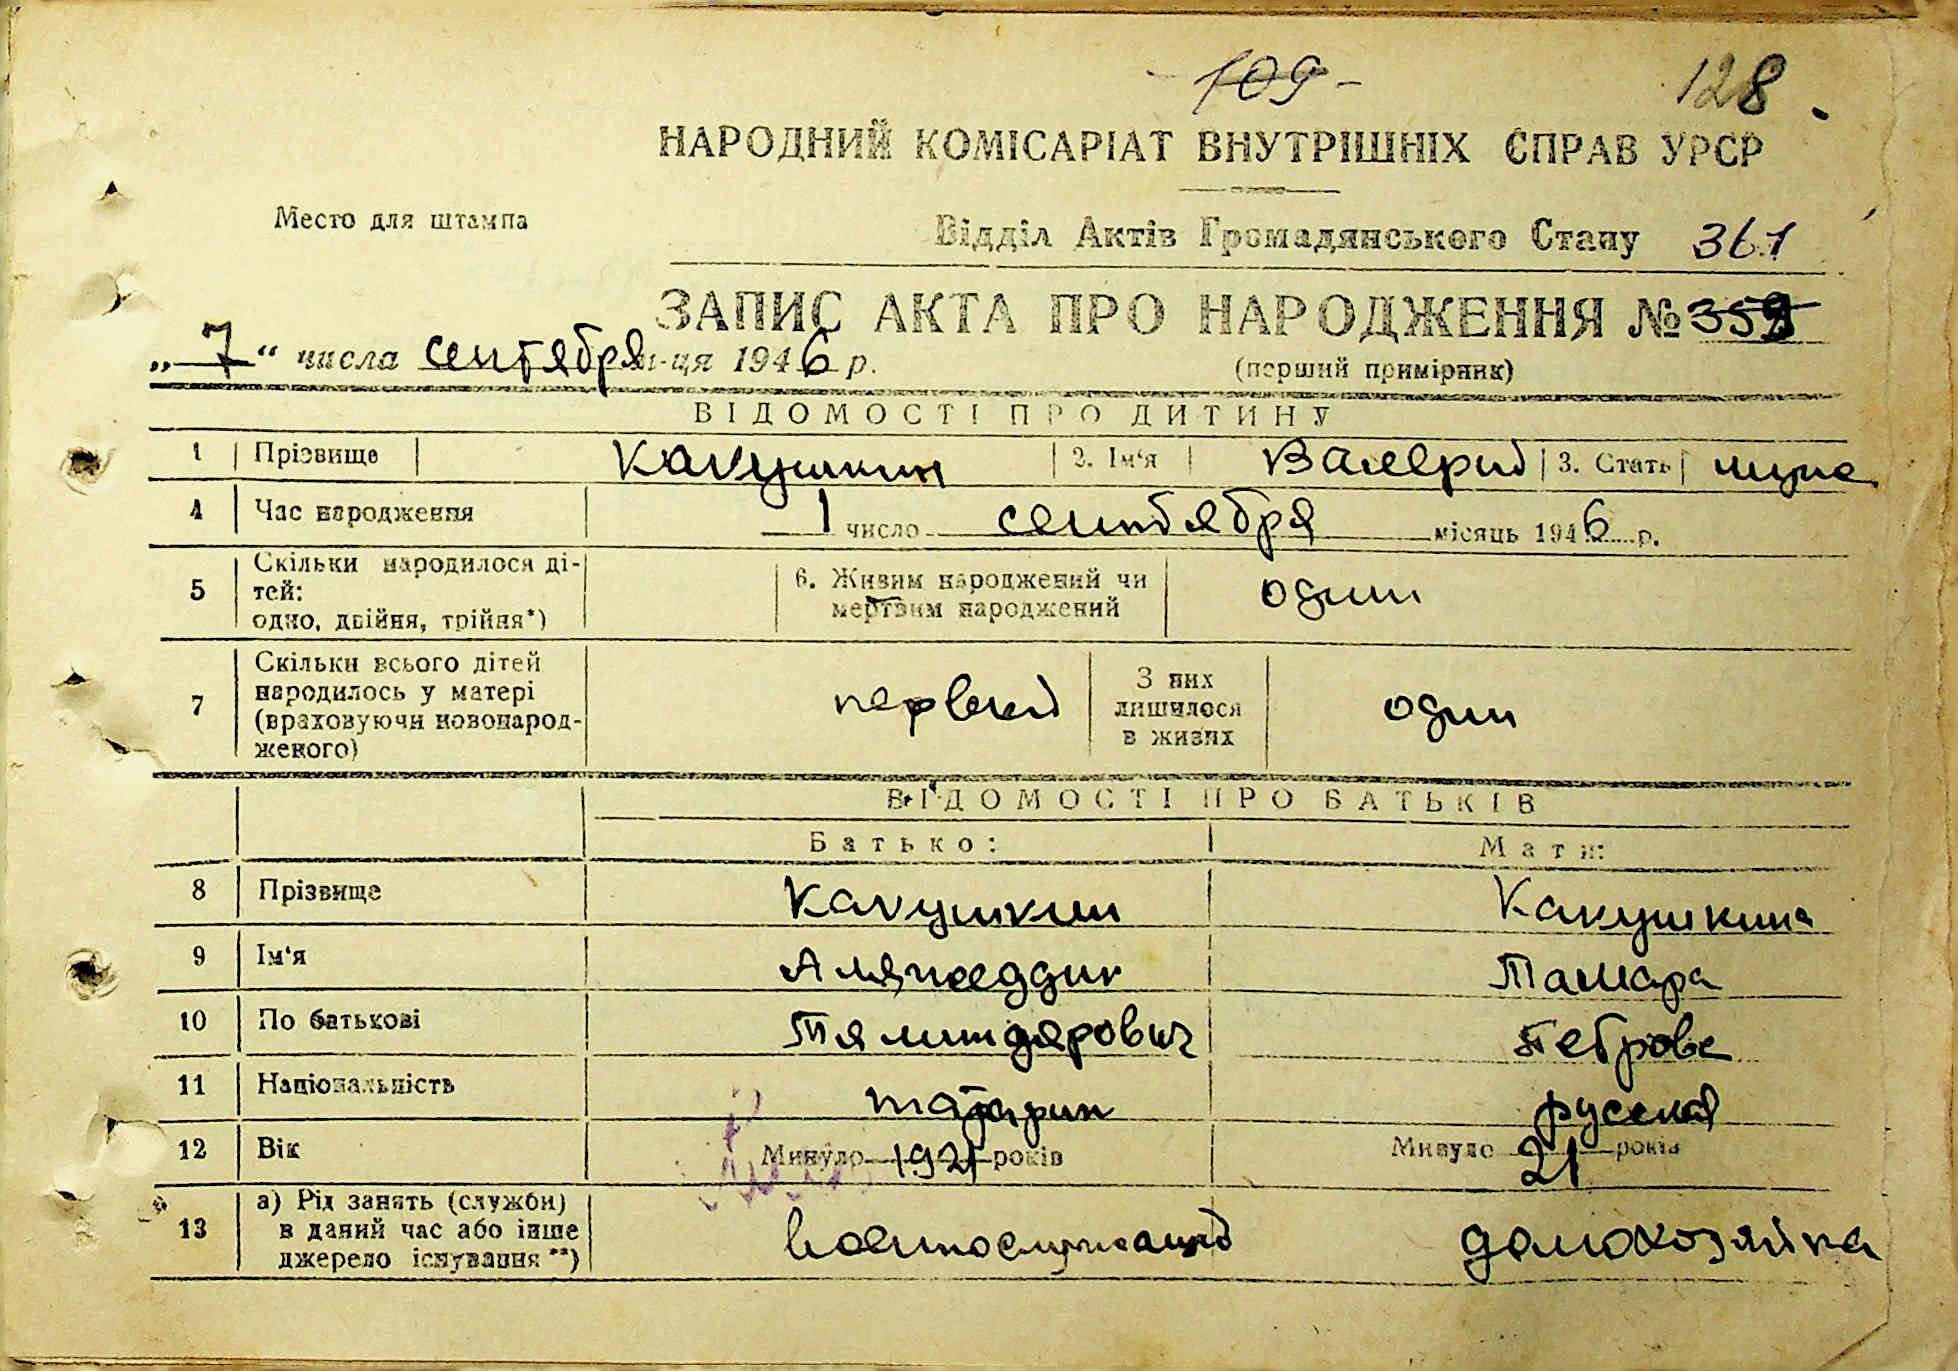 109 -
128
НАРОДНИЙ КОМІСАРІАТ ВНУТРІШНІХ СПРАВ УРСР
Место для штампа
Відділ Актів Громадянського Стану 361
ЗАПИС АКТА ПРО НАРОДЖЕННЯ № 359
„ 7 “ числа сентября м-ця 1946 р.
(перший примірник)
ВІДОМОСТІ ПРО ДИТИНУ
1 Прізвище Какушкин 2. Ім‘я Валерий 3. Стать муж.
4 Час народження 1 число сентября місяць 1946 р.
5 Скільки народилося ді-
тей:
одно, двійня, трійня*)
6. Живим народжений чи
мертвим народжений
один
7 Скільки всього дітей
народилось у матері
(враховуючи новонарод-
женого)
первый
З них
лишилося
в живих
один
ВІДОМОСТІ ПРО БАТЬКІВ
Батько: Мати:
8 Прізвище Какушкин Какушкина
9 Ім‘я Тамара
10 По батькові Петровна
11 Національність татарин русская
12 Вік Минуло 1921 років Минуло 21 років
13 а) Рід занять (служби)
в даний час або інше
джерело існування **)
военнослужащий домохозяйка